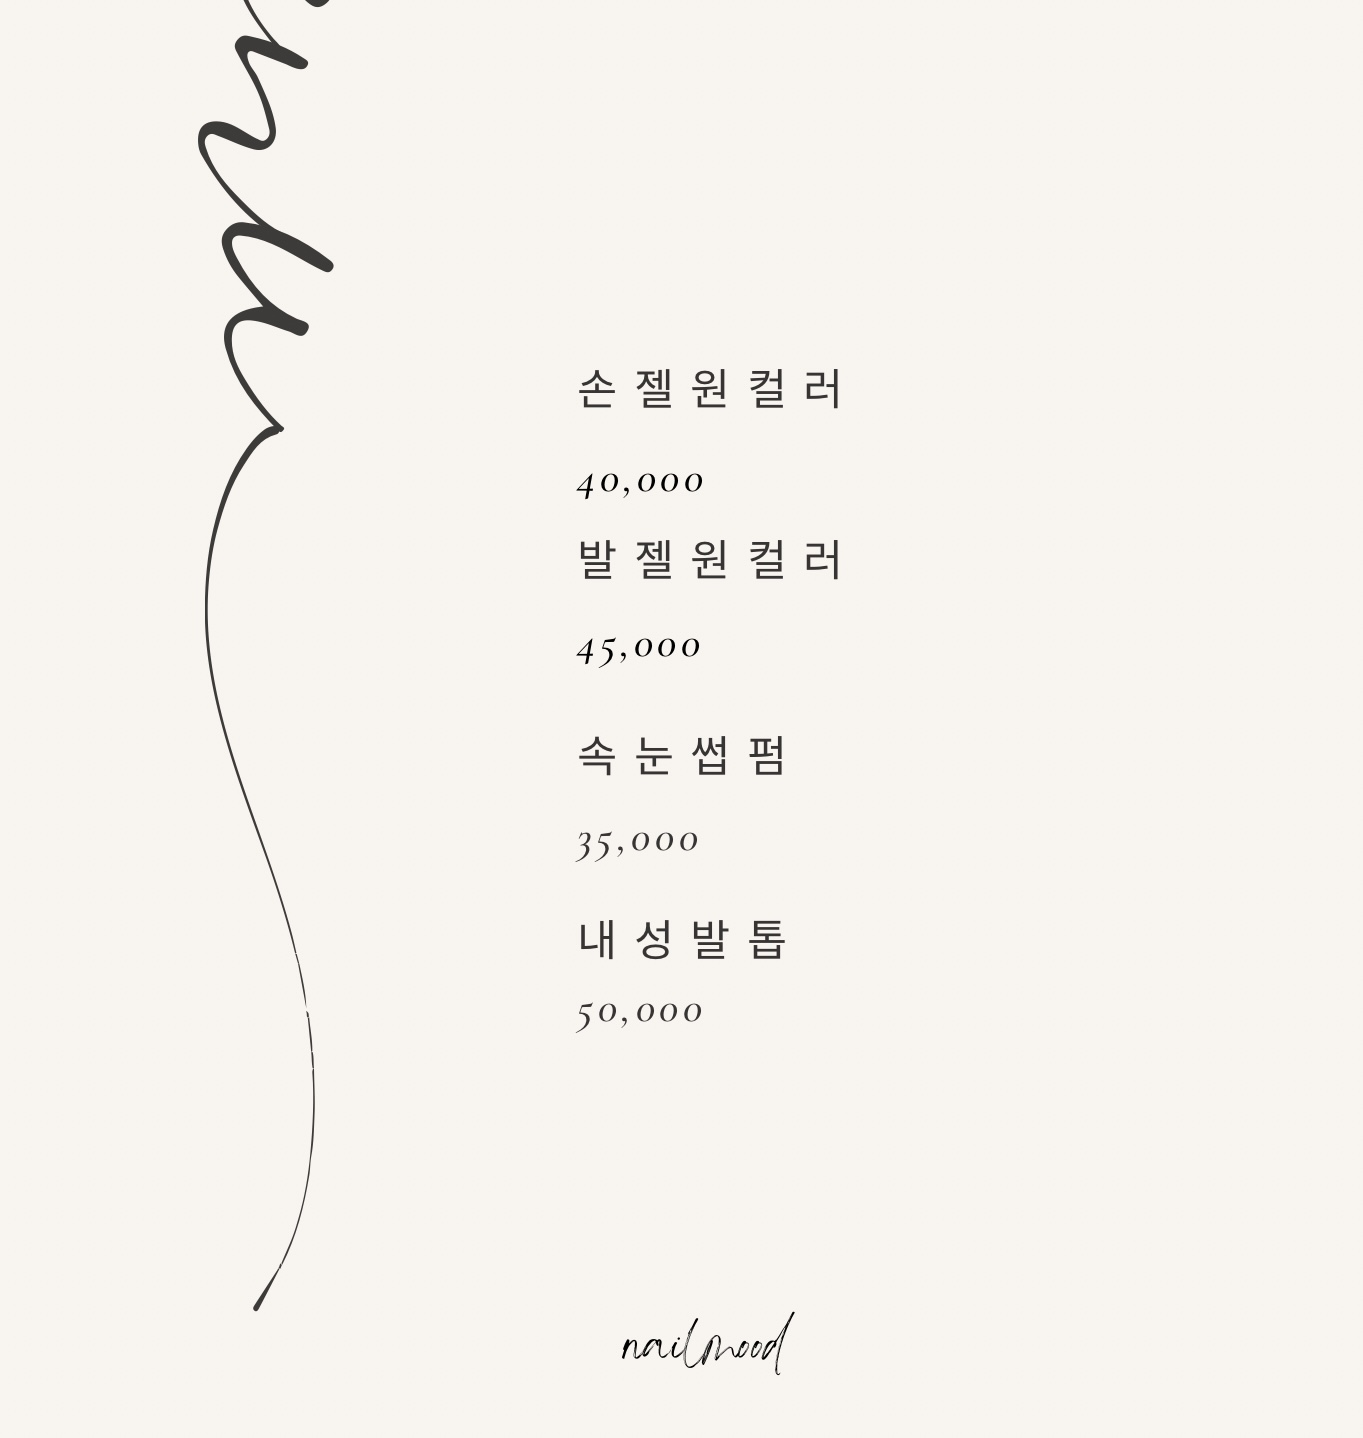 손젤원컬러
40,000
발젤원컬러
45,000
속눈썹펌
35,000
내성발톱
50,000
nailmood